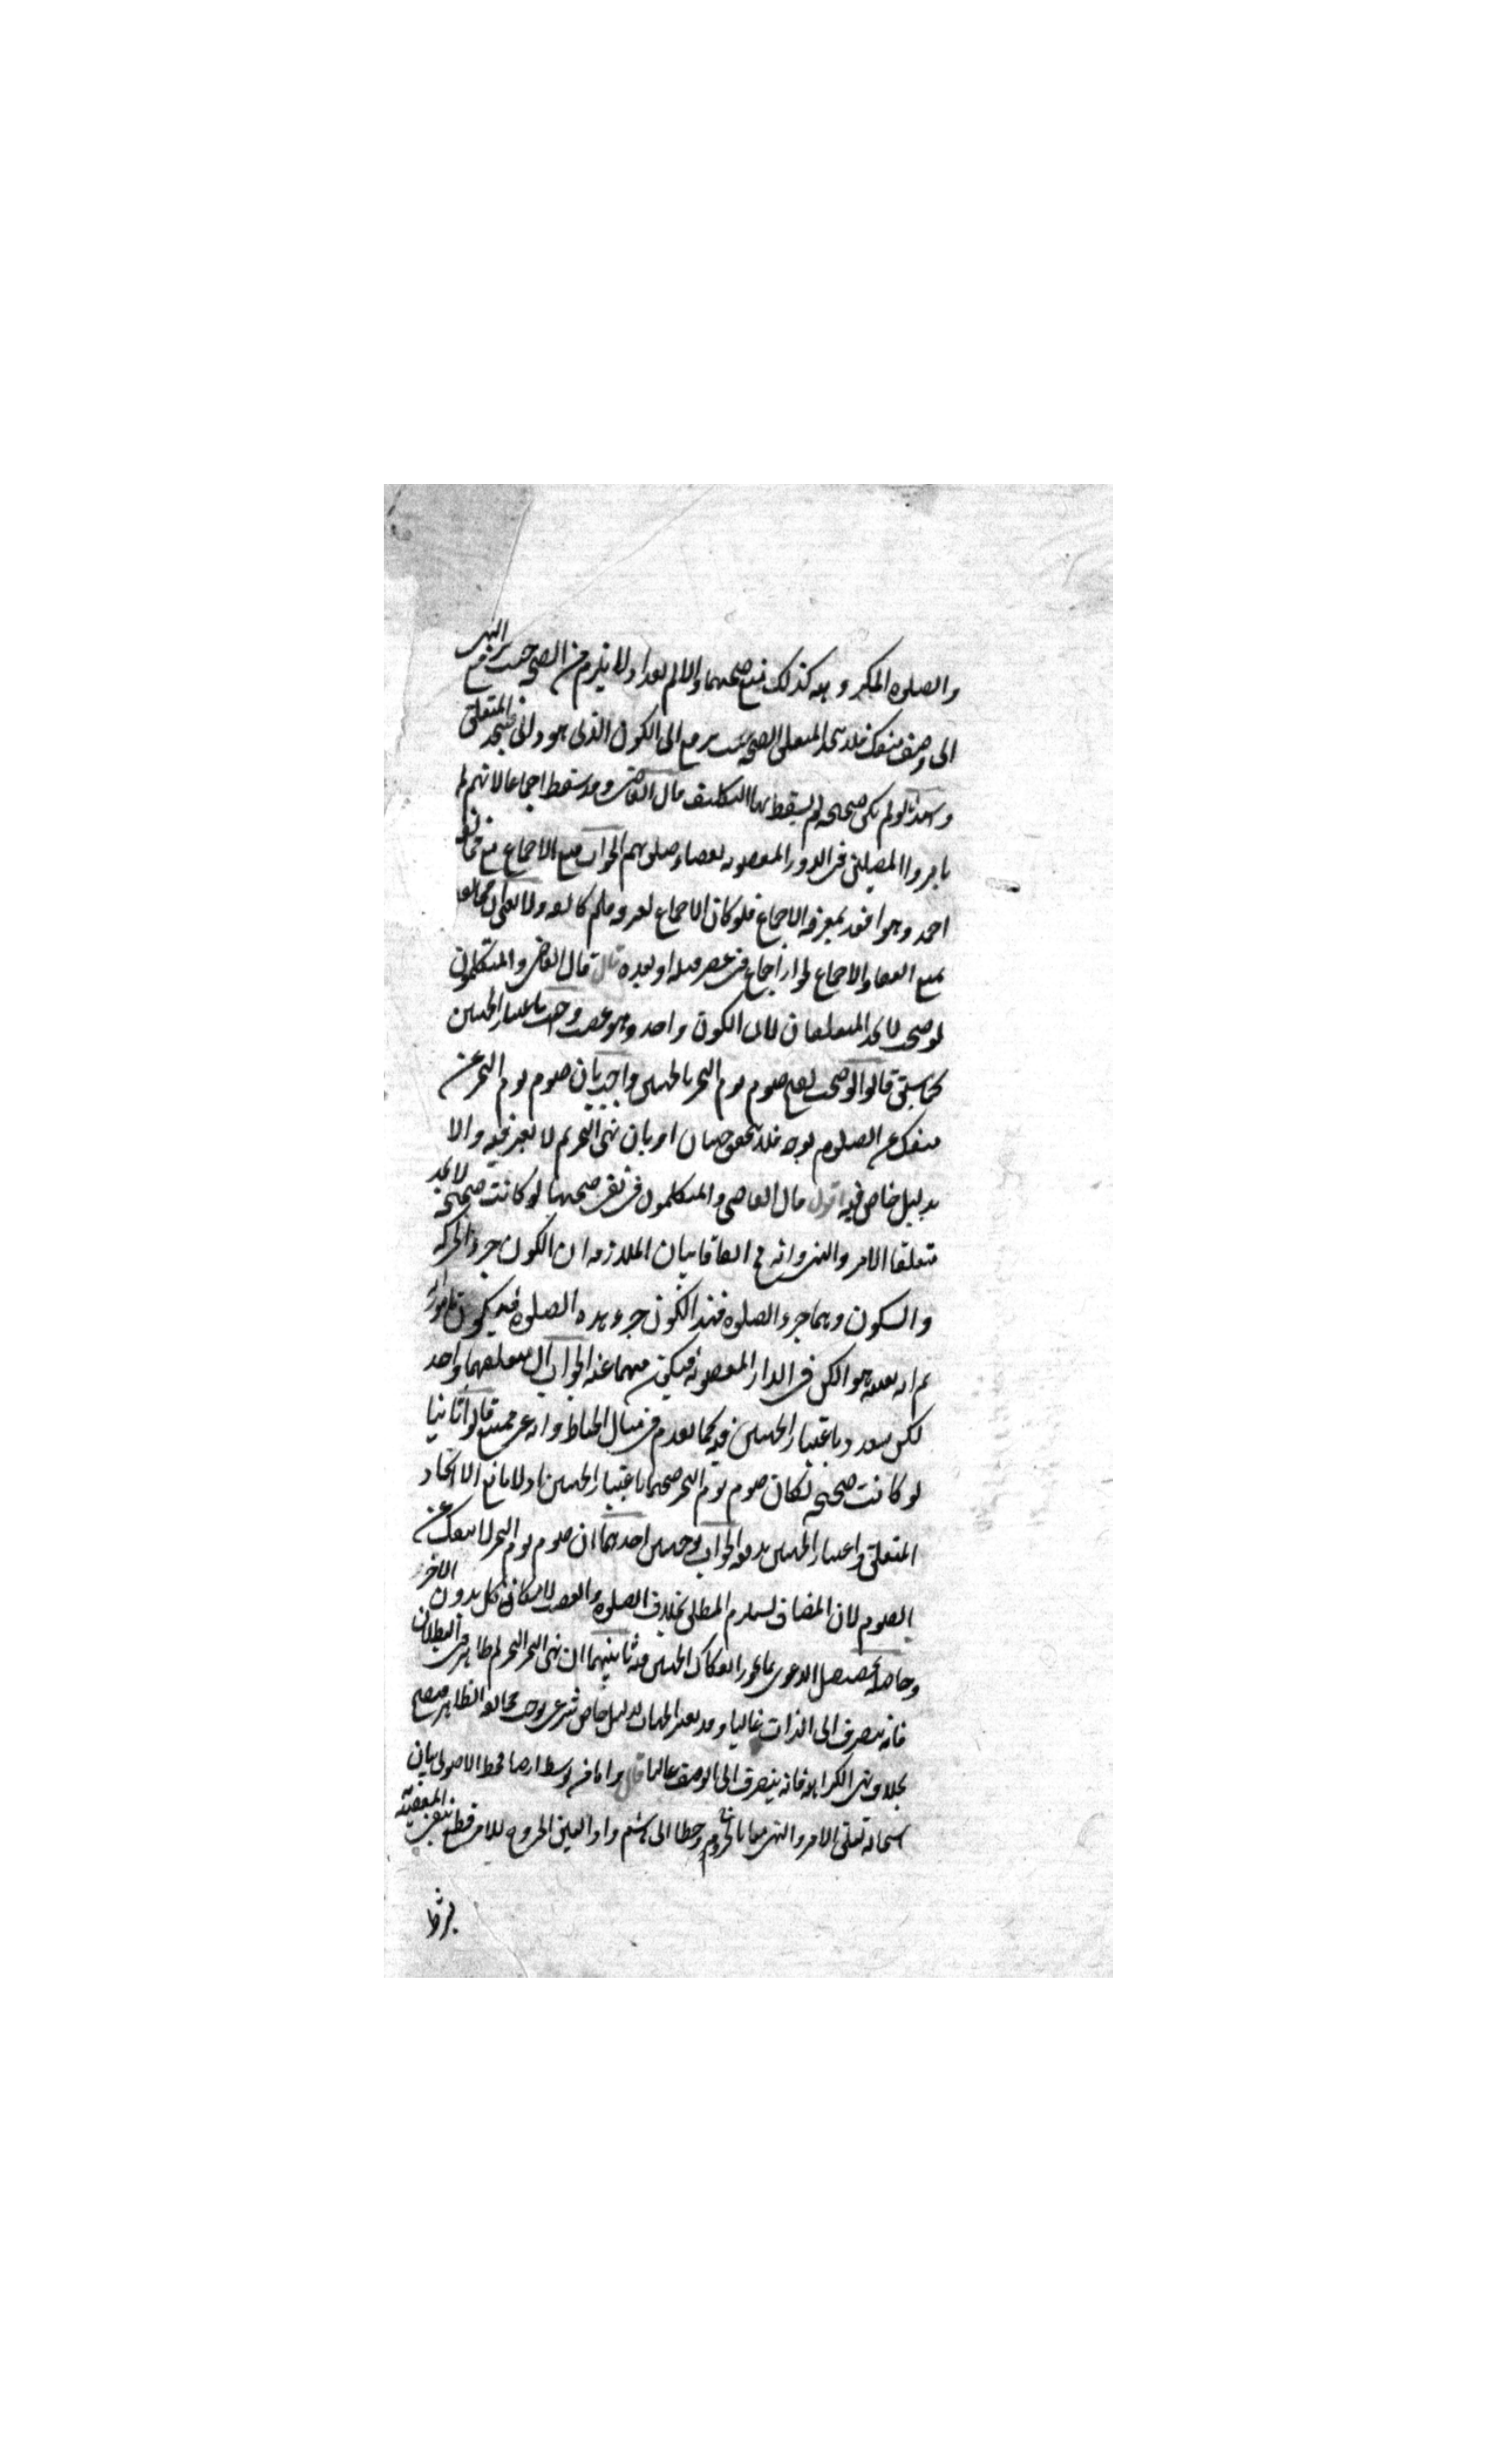 والصلوه المكروهه كذلك فيمنع صحتهما والا لم يعدا ولا يلزم من الصحه حيث يرجع النهى
الى وصف منفك فلا يتحد المتعلق الصحه حيث يرجع الى الكون الذى هو ذاتى فيتحد المتعلق
واستدل لو لم تكن صحيحه لم يسقط بها التكليف قال القاضى وقد سقط اجماعا لانهم لم
يامروا المصلين فى الدور المغصوبه بقضاء صلوتهم الجواب منع الاجماع مع مخالفه
احمد وهو اقعد بمعرفه الاجماع فلو كان الاجماع لعرفه فلم خالفه ولا يعنى ان مخالفته
تمنع انعقاد الاجماع لجواز اجماع فى عصر قبله او بعده قال قال القاضى والمتكلمون
لو صحت لاتحد المتعلقان لان الكون واحد وهو غصب واجيب باعتبار الجهتين
كما سبق قالوا لو صحت لصح صوم يوم النحر بالجهتين واجيب بان صوم يوم النحر غير
منفك عن الصوم بوجه فلا تتحقق جهتان او بان نهى التحريم لا تعتبر فيه والا
بدليل خاص فيه اقول قال القاضى والمتكلمون فى نفى صحتها لو كانت صحيحه لاتحد
متعلقا الامر والنهى وانه مح اتفاقا بيان الملازمه ان الكون جزء الحركه
والسكون وهما جزء الصلوه فهذا الكون جزء هذه الصلوه فيكون مامورا به
ثم انه بعينه هو الكون فى الدار المغصوبه فيكون منهيا عنه الجواب ان متعلقهما واحد
لكن يتعدد باعتبار الجهتين فيه كما تقدم فى مثال الخياط وانه غير ممتنع قالوا ثانيا
لو كانت صحيحه لكان صوم يوم النحر صحيحا باعتبار الجهتين اذ لا مانع الا اتحاد
المتعلق واعتبار الجهتين يدفعه الجواب بوجهين احدهما ان صوم يوم النحر لا ينفك عن
الصوم لان المضاف يستلزم المطلق بخلاف الصلوه والغصب لامكان كل بدون الاخر
وحاصله تخصيص الدعوى بما يجوز انفكاك الجهتين فيه ثانيهما ان نهى التحريم ظاهر فى البطلان
فانه ينصرف الى الذات غالبا وقد تعتبر الجهات لدليل خاص شرعى يوجب مخالفه الظاهر فيصح
بخلاف نهى الكراهه فانه ينصرف الى الوصف غالبا قال واما من توسط ارضا فحظ الاصولى بيان
استحاله تعلق الامر والنهى معا بالخروج وخطا ابى هاشم واذا تعين الخروج للامر قطع بنفى المعصيه